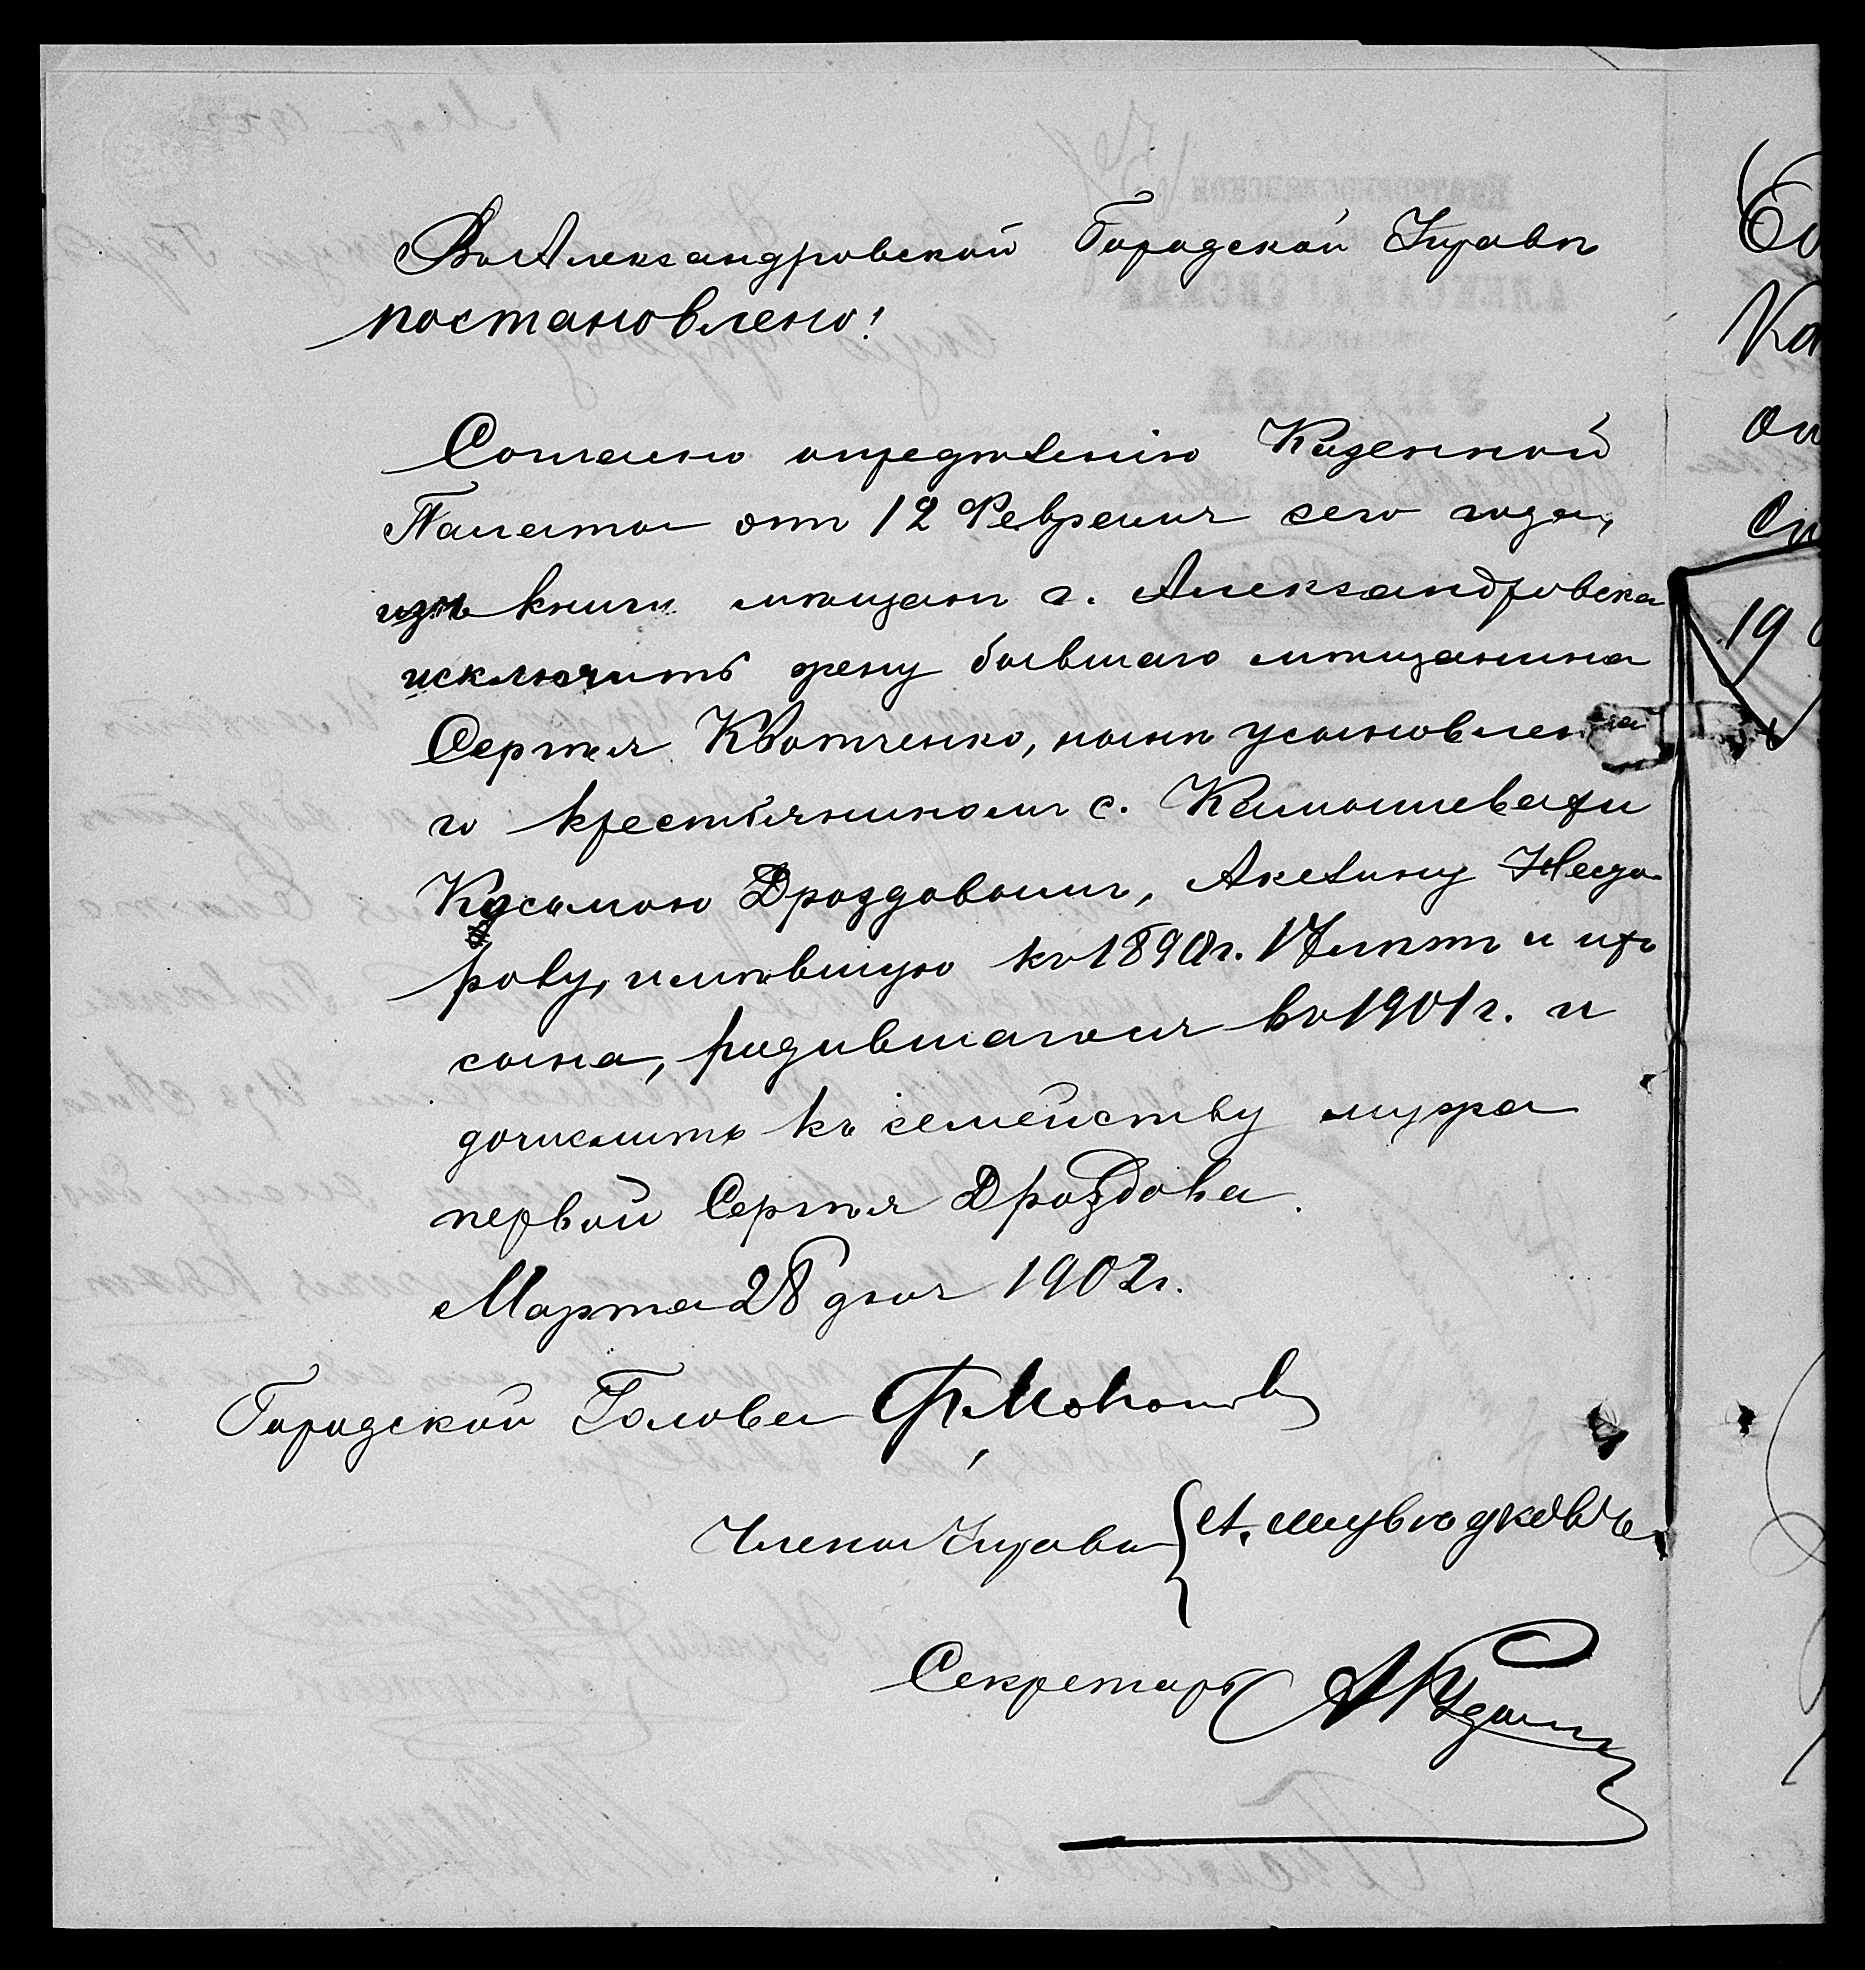 Въ Александровской Городской Управѣ
постановлено:
Согласно опредѣленію Казенной
Палаты отъ 12 Февраля сего года,
изъ книги мѣщанъ г. Александровска
исключить жену бывшаго мѣщанина
Сергѣя Квотченко, нынѣ усыновленна
го крестьяниномъ с. Камышевахи
Косьмою Дроздовымъ, Аксинью
рову, имѣвшую къ 1890г. 17 лѣтъ и ихъ
сына, родившагося въ 1901 г. и
дочислить къ семейству мужа
первой Сергѣя Дроздова.
Марта 28 дня 1902г.
Городской Голова Ф. Мовчановъ
Члены Управы А.
Секретарь
19